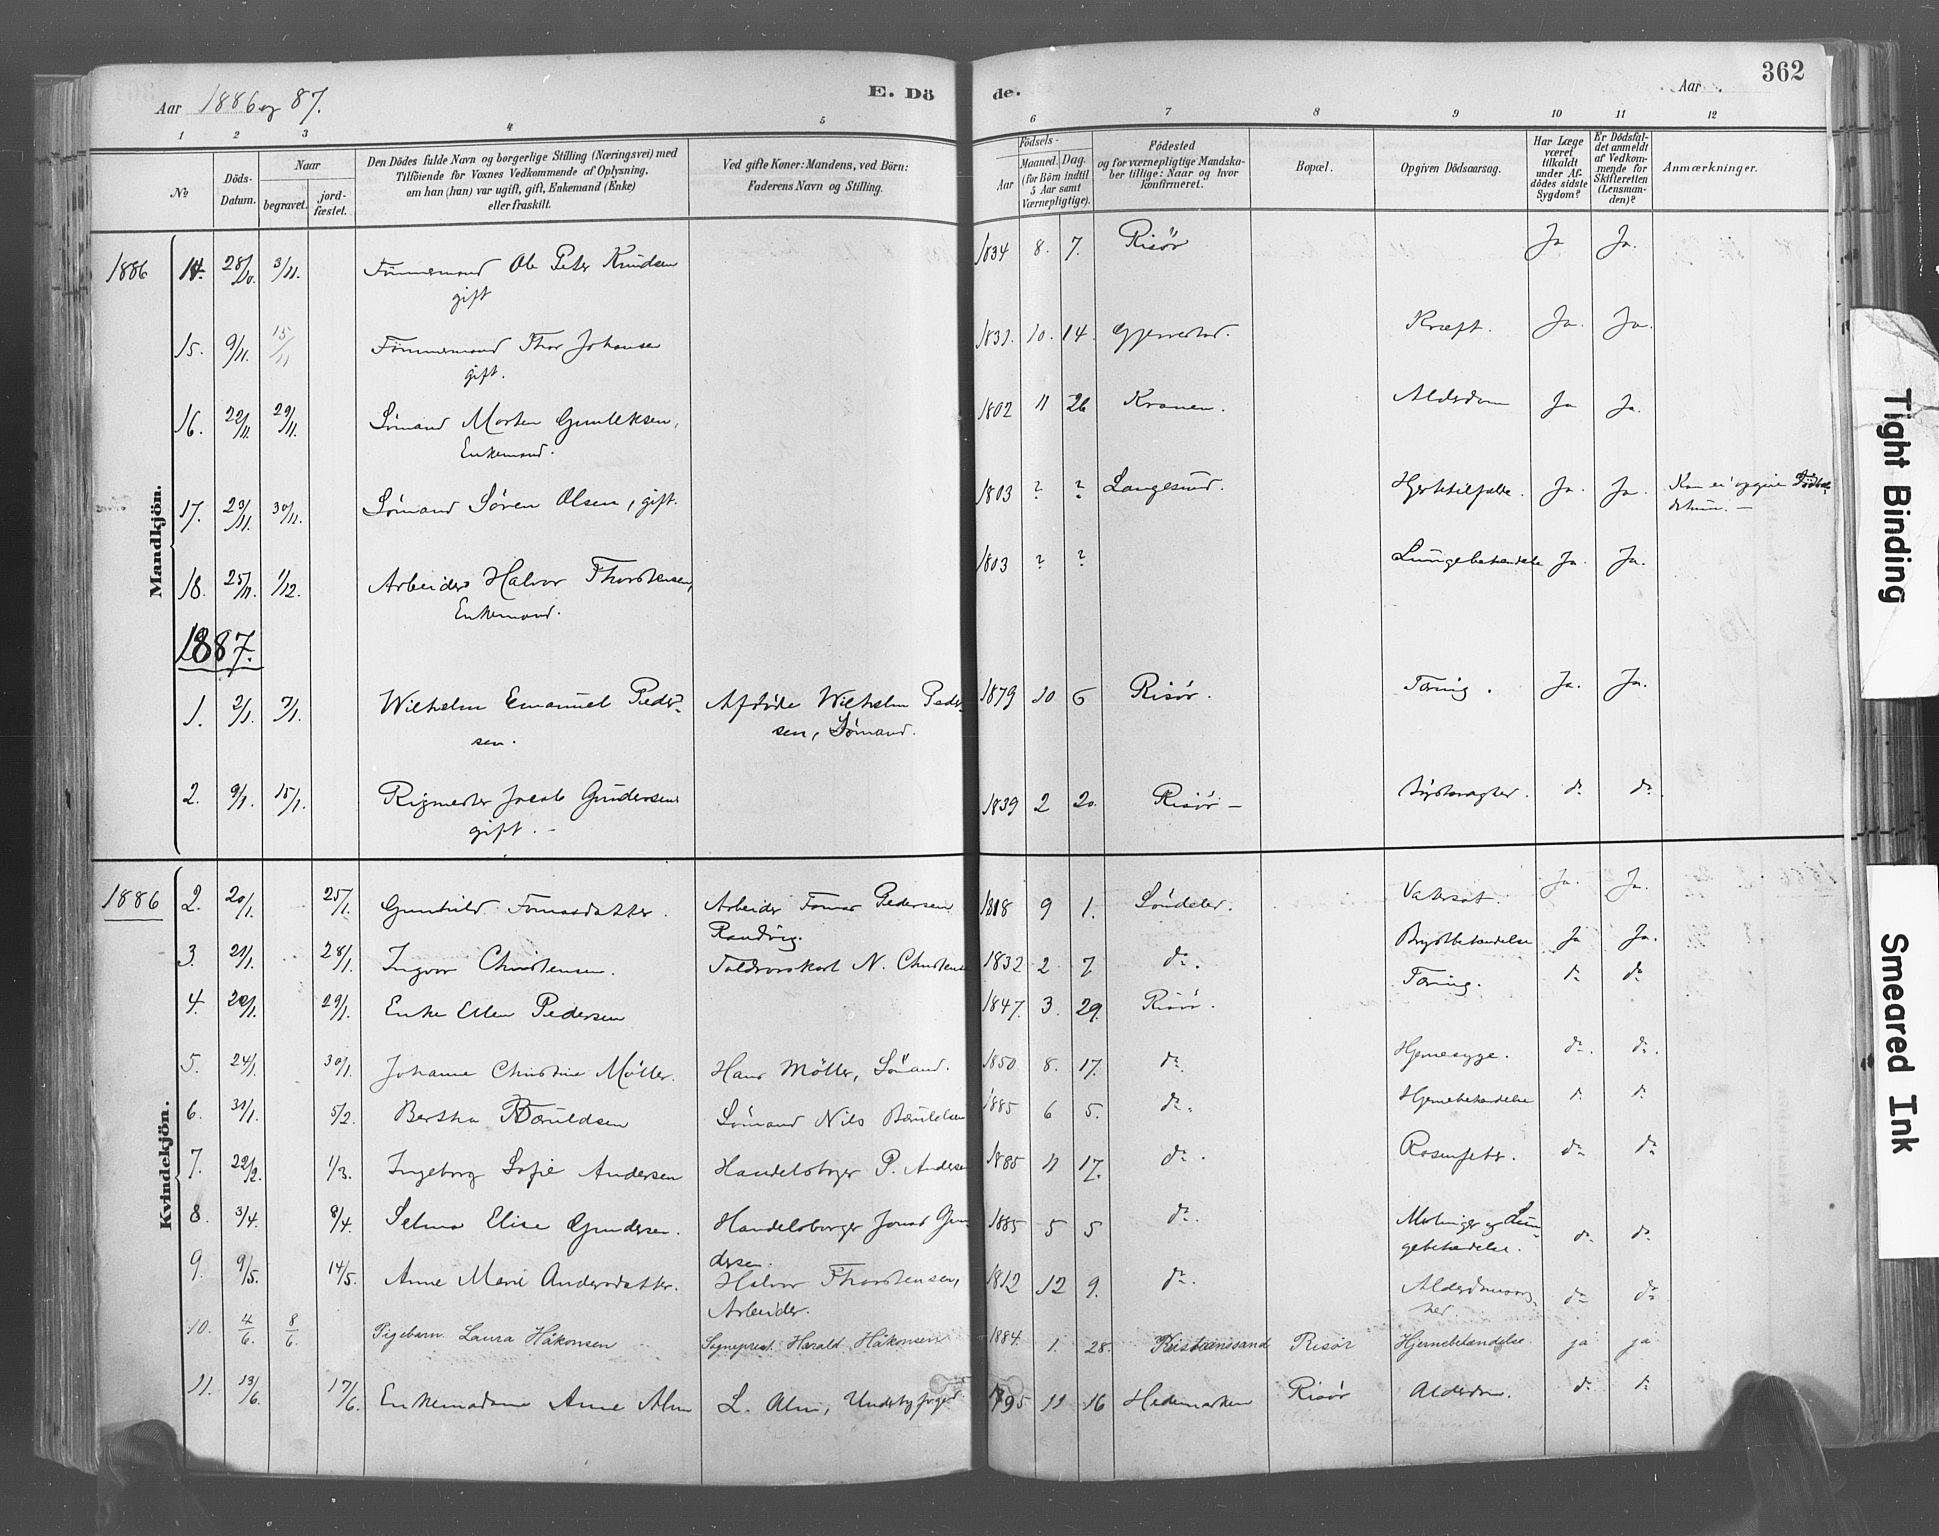 362
Aar 1886 og 87.
E. Dö
de.
Aar
1 2 3 4 5 6 7 8 9 10 11 12
No
Döds-Datum.
Naar
begravet.
jordfæstet.
Den Dödes fulde Navn og borgerlige Stilling (Næringsvei) med
Tilföiende for Voxnes Vedkommende af Oplysning,
om han (hun) var ugift, gift, Enkemand (Enke)
eller fraskilt.
Ved gifte Koner: Mandens, ved Börn:
Faderens Navn og Stilling.
Födsels-
Aar
Maaned. Dag.
(for Börn indtil
5 Aar samt
Værnepligtige).
Födested
og for værnepligtige Mandska-
ber tillige: Naar og hvor
konfirmeret.
Bopæl.
Opgiven Dödsaarsag.
Har Læge
været
tilkaldt
under Af-
dödes sidste
Sygdom?
Er Dödsfal-
det anmeldt
af Vedkom-
mende for
Skifteretten
(Lensman-
den)?
Anmærkninger.
Mandkjön.
1886 14. 28/10. 3/11. Tömmermand Ole Peter Knudsen 1834 8. 7. Risör Ja Ja.
gift
15. 9/11. 15/11 Tömmermand Thor Johansen 1831. 10. 14. Gjerrestad. Kræft. Ja. Ja.
gift.
16. 22/11. 29/11. Sömand Morten Gunleksen, 1802 11 26 Kranen. Alderdom Ja Ja.
Enkemand.
17. 23/11. 30/11. Sömand Sören Olsen, gift. 1803 ? ? Langesund. Hjertetilfælde. Ja. Ja. Kan ei opgive Födsels-
datum. —
18. 25/11. 1/12. Arbeider Halvor Thorstensen, 1803 ? ? Lungebetændelse Ja. Ja.
Enkemand.
1887.
1. 2/1. 7/1. Wilhelm Emanuel Peder- Afdöde Wilhelm Peder- 1879 10 6 Risör. Tæring. Ja. Ja.
sen. sen, Sömand.
2. 9/1. 15/1. Rigmester Jacob Gundersen 1839 2 20. Risör — d° d°
gift. —
Kvindekjön.
1886 2. 20/1. 25/1. Gunhild Tomasdatter. Arbeider Tomas Pedersen 1818 9 1. Söndeler. Vatersot. Ja. Ja.
Randvig.
3. 21/1. 28/1. Ingvor Christensen. Toldvorskarl N. Christensen 1832 2 7 d°. Brystbetændelse Ja Ja.
4. 20/1. 29/1. Enke Ellen Pedersen 1847. 3. 29. Risör. Tæring. d° d°
5. 24/1. 30/1. Johanne Christine Möller. Hans Möller, Sömand. 1850 8. 17. d°. Hjernesyge. d°. d°.
6. 31/1. 5/2. Bertha Bæruldsen Sömand Nils Bæruldsen 1885 6 5. d°. Hjernebetændelse d°. d°.
7. 22/2. 1/3. Ingeborg Sofie Andersen Handelsborger P. Andersen 1885 11 17. d°. Rosenfeber. d° d°
8. 3/4. 8/4. Selma Elise Gundersen. Handelsborger Jonas Gun- 1885 5 5 d°. Mæslinger og Lun-
dersen. gebetændelse. d°. d°.
9. 9/5. 14/5. Anne Marie Andersdatter. Halvor Thorstensen, 1812 12 9. d°. Alderdomssvag-
Arbeider. hed. d° d°
10. 4/6. 8/6. Pigebarn Laura Håkonsen Sognepræst Harald Håkonsen 1884. 1. 28. Kristianssand Risör Hjernebetændelse ja ja
11. 13/6. 17/6. Enkemadame Anne Alm L. Alm, Underbyfoged 1795 11 16 Hedemarken Risör Alderdom. d°. d°
Tight Binding
Smeared Ink